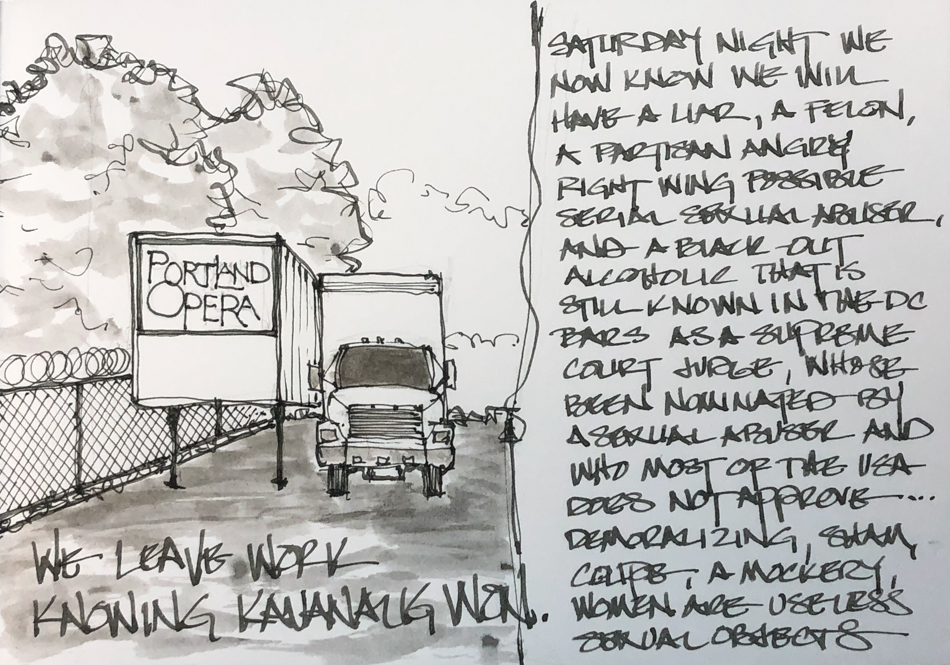 PORTLAND
OPERA
WE LEAVE WORK
KNOWING KAVANAUG WON.
SATURDAY NIGHT WE
NOW KNOW WE WILL
HAVE A LIAR, A FELON,
A PARTISAN ANGRY
RIGHT WING POSSIBLE
SERIAL SEXUAL ABUSER,
AND A BLACK-OUT
ALCOHOLIC THAT IS
STILL KNOWN IN THE DC
BARS AS A SUPREME
COURT JUDGE, WHOSE
BEEN NOMINATED BY
A SEXUAL ABUSER AND
WHO MOST OF THE USA
DOES NOT APPROVE...
DEMORALIZING, SHAM,
COUPE, A MOCKERY,
WOMEN ARE USELESS
SEXUAL OBJECTS